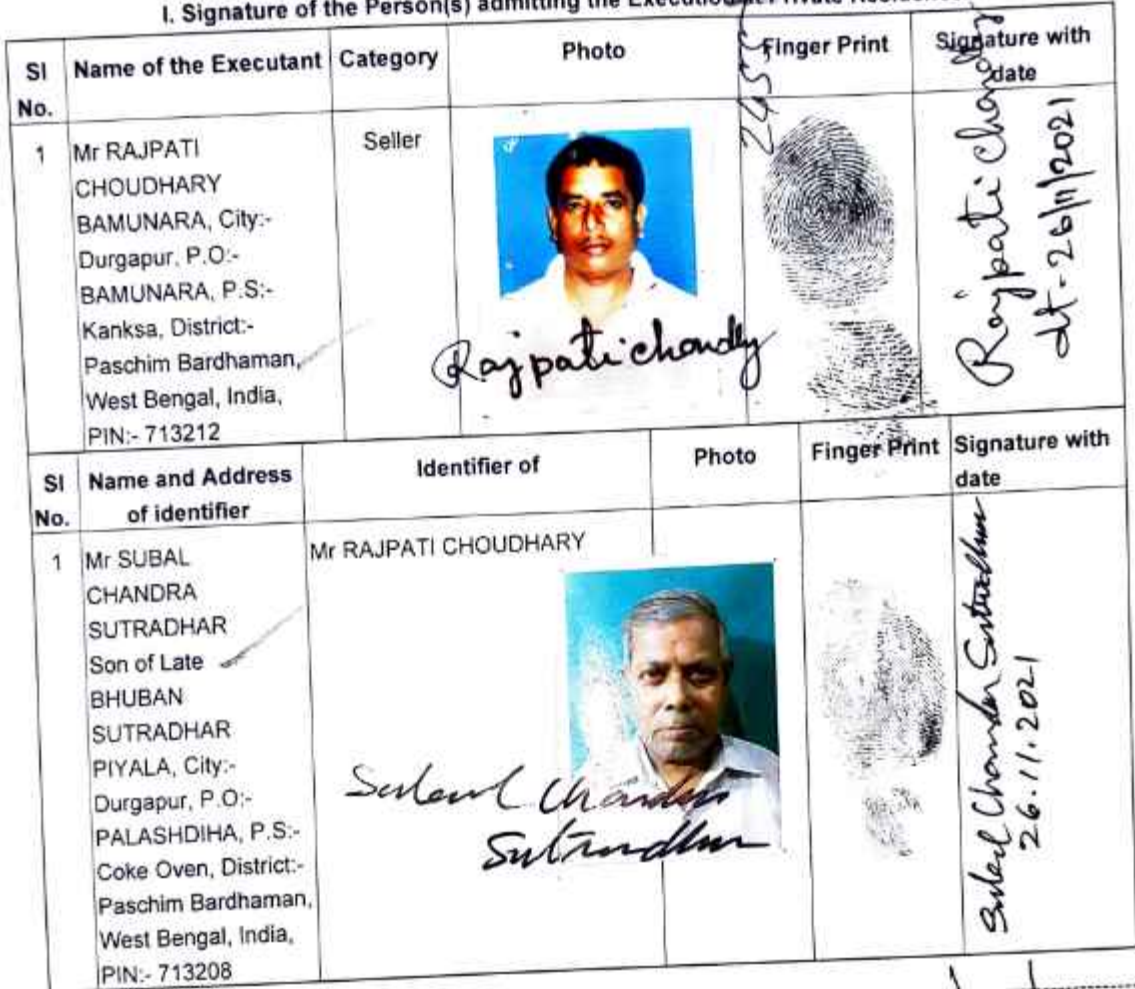 I. Signature of the Person(s) admitting the Execution at Private Residence
SI No.
Name of the Executant
Category
Photo
Finger Print
Signature with date
1
Mr RAJPATI
CHOUDHARY
BAMUNARA, City:-
Durgapur, P.O:-
BAMUNARA, P.S:-
Kanksa, District:-
Paschim Bardhaman,
West Bengal, India,
PIN:- 713212
Seller
Rajpati chowdhy
2455
Rajpati Chowdhy
dt - 26/11/2021
SI No.
Name and Address
of identifier
Identifier of
Photo
Finger Print
Signature with
date
1
Mr SUBAL
CHANDRA
SUTRADHAR
Son of Late
BHUBAN
SUTRADHAR
PIYALA, City:-
Durgapur, P.O:-
PALASHDIHA, P.S:-
Coke Oven, District:-
Paschim Bardhaman,
West Bengal, India,
PIN:- 713208
Mr RAJPATI CHOUDHARY
Subal Chandra
Sutradhar
Subal Chandra Sutradhar
26.11.2021